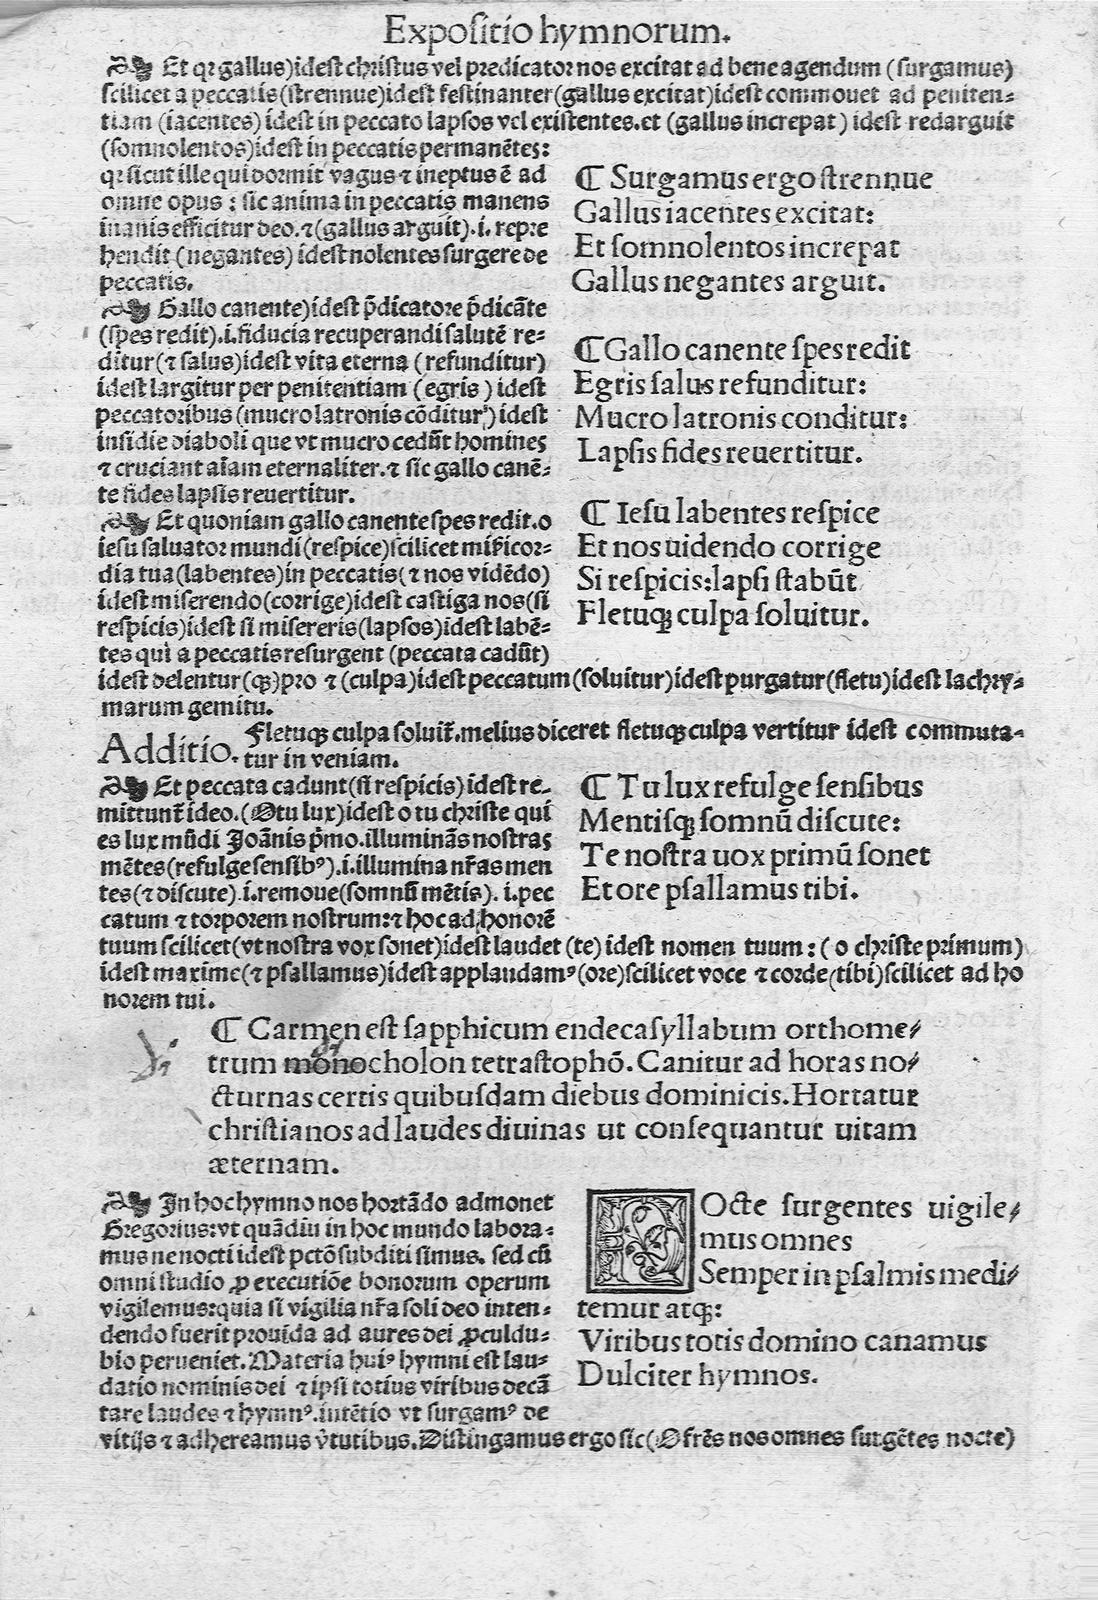 Expoſitio hymnorum.
Et qꝛ gallus)ideſt chriſtus vel predicatoꝛ nos excitat ad bene agendum (ſurgamus)
ſcilicet a peccatis(ſtrennue)ideſt feſtinanter(gallus excitat)ideſt commouet ad peniten⸗
tiam (iacentes) ideſt in peccato lapſos vel exiſtentes.et (gallus increpat) ideſt redarguit
(ſomnolentos)ideſt in peccatis permanētes:
qꝛ ſicut ille qui dormit vagus ⁊ ineptus ē ad
omne opus : ſic anima in peccatis manens
inanis efficitur deo.⁊(gallus arguit).i. repre
hendit (negantes) ideſt nolentes ſurgere de
peccatis.
¶ Surgamus ergo ſtrennue
Gallus iacentes excitat:
Et ſomnolentos increpat
Gallus negantes arguit.
Gallo canente)ideſt p̄dicatoꝛe p̄dicāte
(ſpes redit).i.fiducia recuperandi ſalutē re⸗
ditur(⁊ ſalus)ideſt vita eterna (refunditur)
ideſt largitur per penitentiam (egris) ideſt
peccatoꝛibus (mucro latronis cōditur)ideſt
inſidie diaboli que vt mucro cedūt homines
⁊ cruciant aīam eternaliter.⁊ ſic gallo canē⸗
te fides lapſis reuertitur.
¶ Gallo canente ſpes redit
Egris ſalus refunditur:
Mucro latronis conditur:
Lapſis fides reuertitur.
Et quoniam gallo canente ſpes redit.o
ieſu ſaluatoꝛ mundi(reſpice)ſcilicet miſ̄icoꝛ⸗
dia tua(labentes)in peccatis(⁊ nos vidēdo)
ideſt miſerendo(coꝛrige)ideſt caſtiga nos(ſi
reſpicis)ideſt ſi miſereris(lapſos)ideſt labē⸗
tes qui a peccatis reſurgent (peccata cadūt)
ideſt delentur(qꝫ)pro ⁊ (culpa)ideſt peccatum(ſoluitur)ideſt purgatur(fletu)ideſt lachry⸗
marum gemitu.
¶ Ieſu labentes reſpice
Et nos uidendo corrige
Si reſpicis:lapſi ſtabūt
Fletuqꝫ culpa ſoluitur.
Additio. Fletuqꝫ culpa ſoluit̄.melius diceret fletuqꝫ culpa vertitur ideſt commuta⸗
tur in veniam.
Et peccata cadunt(ſi reſpicis)ideſt re⸗
mittunt̄ ideo.(O tu lux)ideſt o tu chriſte qui
es lux mūdi Joānis p̄mo.illuminās noſtras
mētes(refulge ſenſibꝰ).i.illumina nr̄as men
tes(⁊ diſcute).i.remoue(ſomnū mētis). i.pec
catum ⁊ toꝛpoꝛem noſtrum:⁊ hoc ad honoꝛē
tuum ſcilicet(vt noſtra vox ſonet)ideſt laudet (te) ideſt nomen tuum : ( o chriſte primum)
ideſt maxime(⁊ pſallamus)ideſt applaudamꝰ(oꝛe)ſcilicet voce ⁊ coꝛde(tibi)ſcilicet ad ho
noꝛem tui.
¶ Tu lux refulge ſenſibus
Mentiſqꝫ ſomnū diſcute:
Te noſtra uox primū ſonet
Et ore pſallamus tibi.
¶ Carmen eſt ſapphicum endecaſyllabum orthome⸗
trum monocholon tetraſtophō. Canitur ad horas no⸗
cturnas certis quibuſdam diebus dominicis.Hortatur
chriſtianos ad laudes diuinas ut conſequantur uitam
æternam.
In hoc hymno nos hoꝛtādo admonet
Gregoꝛius:vt quādiu in hoc mundo laboꝛa⸗
mus ne nocti ideſt pctō ſubditi ſimus. ſed cū
omni ſtudio ꝓ executiōe bonoꝛum operum
vigilemus:quia ſi vigilia nr̄a ſoli deo inten⸗
dendo fuerit prouida ad aures dei ꝓculdu⸗
bio perueniet.Materia huiꝰ hymni eſt lau⸗
datio nominis dei ⁊ ipſi totius viribus decā
tare laudes ⁊ hymnꝰ.intētio vt ſurgamꝰ de
vitijs ⁊ adhereamus v̄tutibus.Diſtingamus ergo ſic(O frēs nos omnes ſurgētes nocte)
NOcte ſurgentes uigile⸗
mus omnes
Semper in pſalmis medi⸗
temur atqꝫ:
Viribus totis domino canamus
Dulciter hymnos.